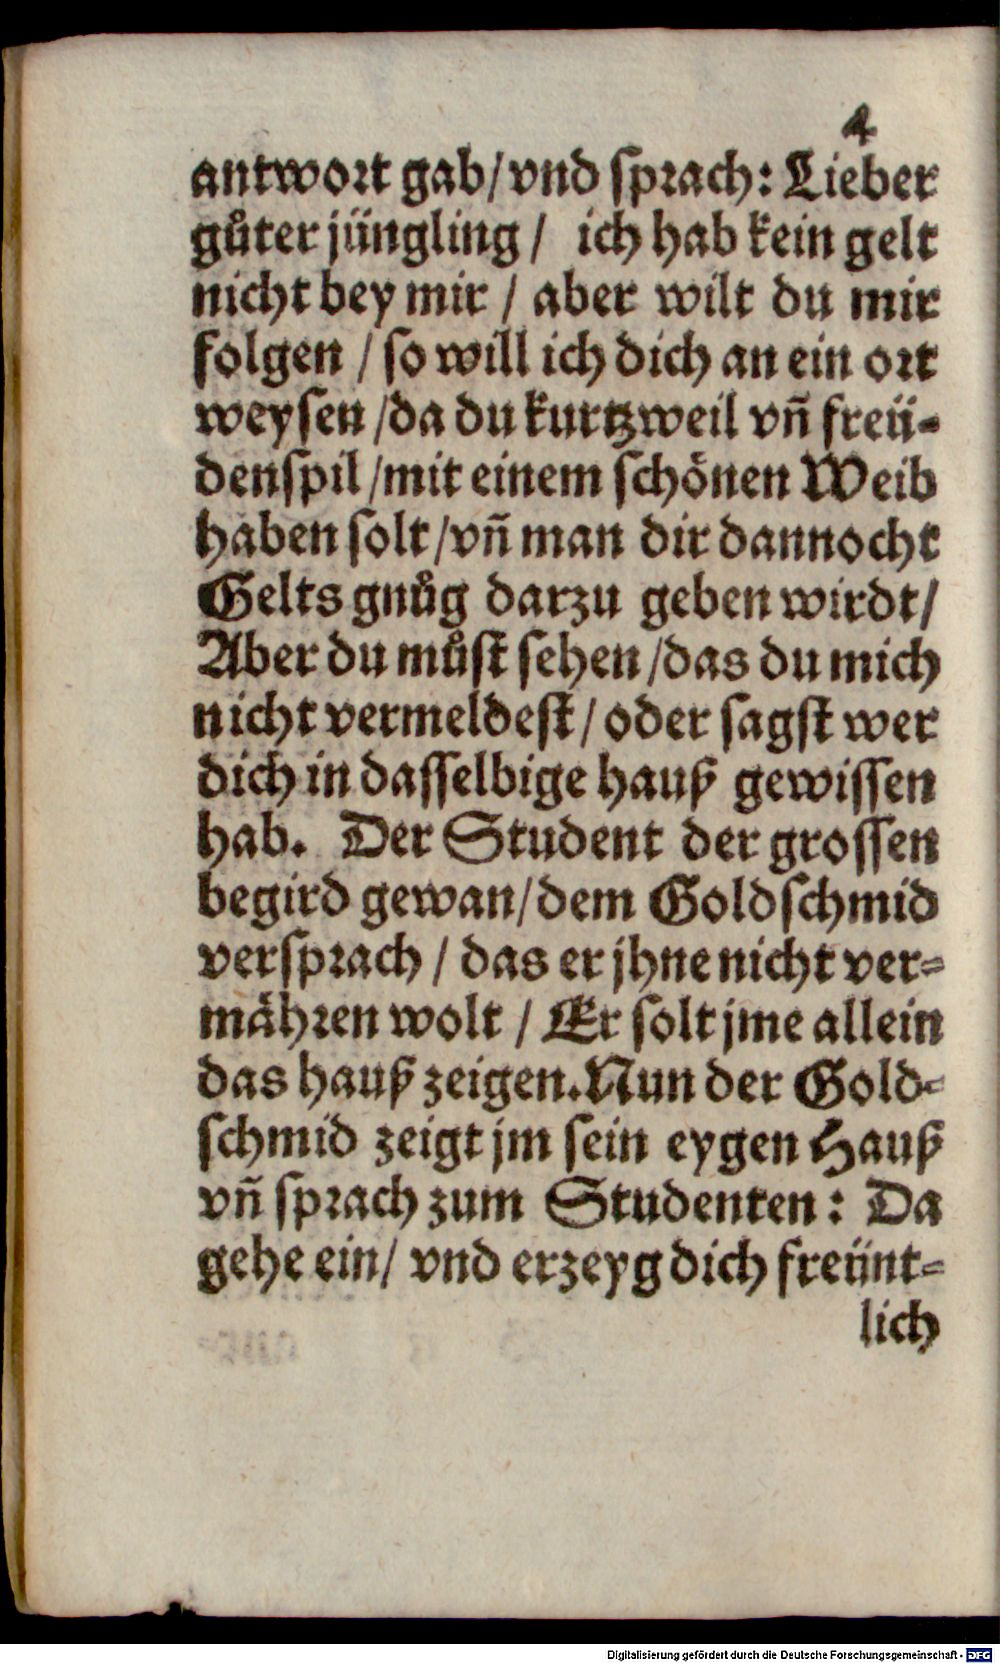 4
antwort gab/vnd sprach: Lieber
gůter jüngling/ ich hab kein gelt
nicht bey mir / aber wilt du mir
folgen / so will ich dich an ein ort
weysen /da du kurtzweil vñ freü-
denspil /mit einem schönen Weib
haben solt /vñ man dir dannocht
Gelts gnůg darzu geben wirdt/
Aber du můst sehen /das du mich
nicht vermeldest / oder sagst wer
dich in dasselbige hauß gewissen
hab. Der Student der grossen
begird gewan/dem Goldschmid
versprach / das er jhne nicht ver-
mähren wolt / Er solt jme allein
das hauß zeigen. Nun der Gold-
schmid zeigt jm sein eygen Hauß
vñ sprach zum Studenten: Da
gehe ein/ vnd erzeyg dich freünt-
lich
Digitalisierung gefördert durch die Deutsche Forschungsgemeinschaft - DFG